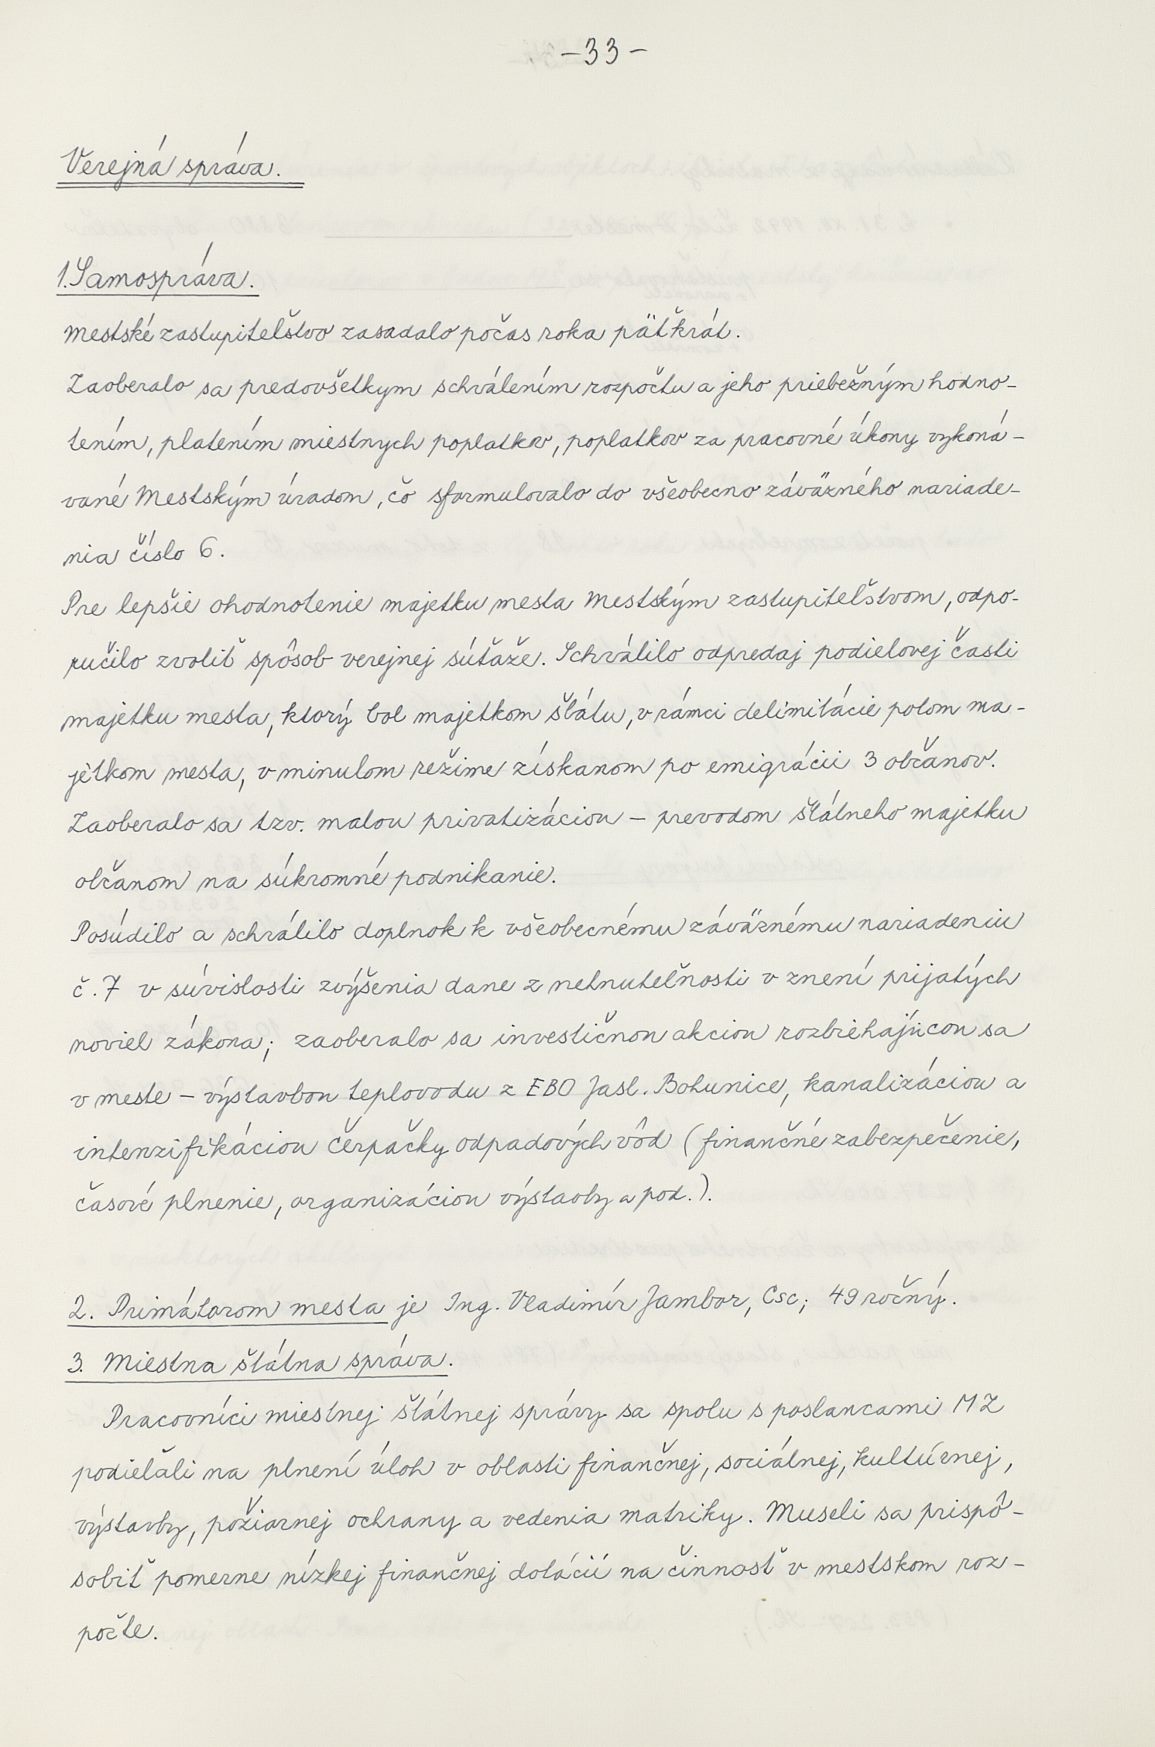 -33-
Verejná správa.
1. Samospráva.
Mestské zastupiteľstvo zasadalo počas roka päťkrát.
Zaoberalo sa predovšetkym schválením rozpočtu a jeho priebežným hodno-
tením, platením miestnych poplatkov, poplatkov za pracovné úkony vykoná-
vané Mestským úradom, čo sformulovalo do všeobecno záväzného nariade-
nia číslo 6.
Pre lepšie ohodnotenie majetku mesta Mestským zastupiteľstvom, odpo-
ručilo zvoliť spôsob verejnej súťaže. Schválilo odpredaj podielovej časti
majetku mesta, ktorý bol majetkom štátu, v rámci delimitácie potom ma-
jetkom mesta, v minulom režime získanom po emigrácii 3 občanov.
Zaoberalo sa tzv. malou privatizáciou – prevodom štátneho majetku
občanom na súkromné podnikanie.
Posúdilo a schválilo doplnok k všeobecnému záväznému nariadeniu
č. 7 v súvislosti zvýšenia dane z nehnuteľnosti v znení prijatých
noviel zákona; zaoberalo sa investičnou akciou rozbiehajúcou sa
v meste – výstavbou teplovodu z EBO Jasl. Bohunice, kanalizáciou a
intenzifikáciou čerpačky odpadových vôd (finančné zabezpečenie,
časové plnenie, organizáciou výstavby a pod.).
2. Primátorom mesta je Ing. Vladimír Jambor, Csc; 49 ročný.
3. Miestna štátna správa.
Pracovníci miestnej štátnej správy sa spolu s poslancami MZ
podieľali na plnení úloh v oblasti finančnej, sociálnej, kultúrnej,
výstavby, požiarnej ochrany a vedenia matriky. Museli sa prispô-
sobiť pomerne nízkej finančnej dotácii na činnosť v mestskom roz-
počte.